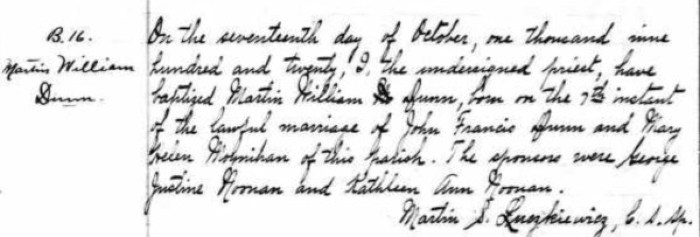 B. 16.
Martin William
Dunn.
On the seventeenth day of October, one thousand nine
hundred and twenty, I, the undersigned priest, have
baptized Martin William Dunn, born on the 7th instant
of the lawful marriage of John Francis Dunn and Mary
Helen Moynihan of this parish. The sponsors were George
Justine Noonan and Kathleen Ann Noonan.
Martin S. C. S. Sp.